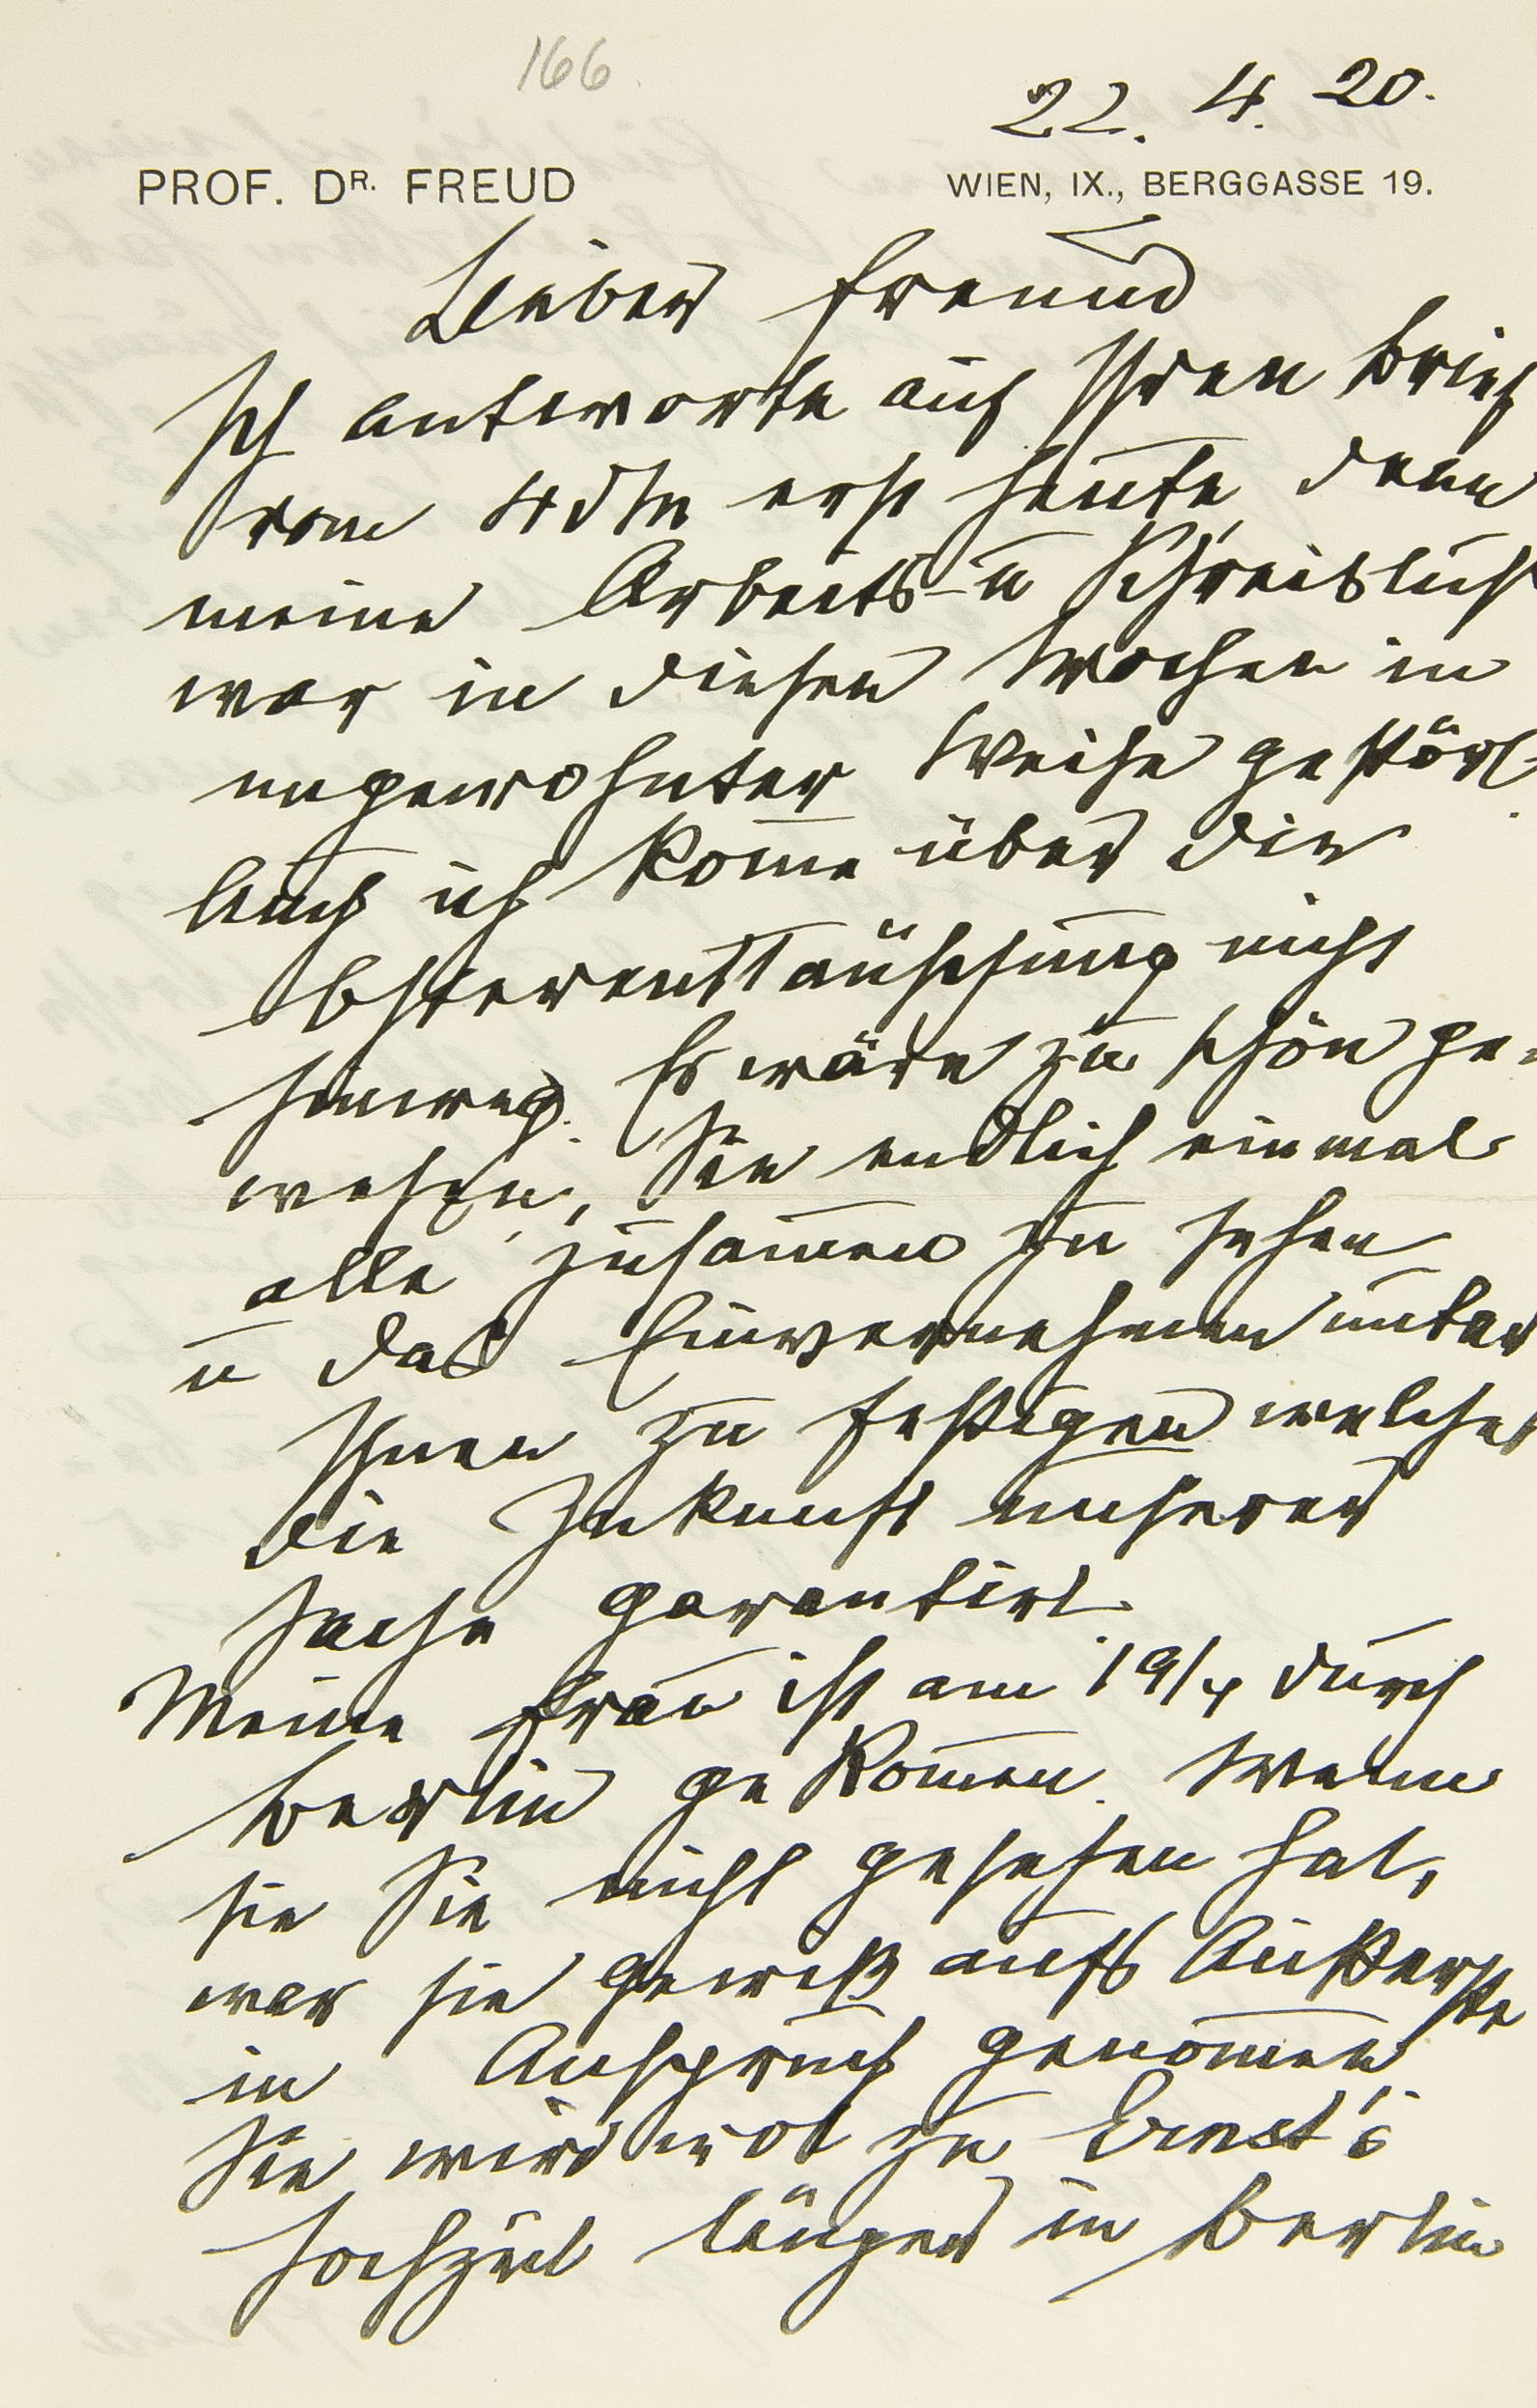 166
22. 4. 20.
PROF. DR. FREUD WIEN, IX., BERGGASSE 19.
Lieber Freund
Ich antworte auf Ihren Brief
vom 4 dM erst heute, denn
meine Arbeits- u Schreiblust
war in diesen Wochen in
ungewohnter Weise gestört.
Auch ich komme über die
Osterenttäuschung nicht
hinweg. Es wäre zu schön ge-
wesen, Sie endlich einmal
alle zusammen zu sehen
u das Einvernehmen unter
Ihnen zu festigen welches
die Zukunft unserer
Sache garantirt.
Meine Frau ist am 19/4 durch
Berlin gekommen. Wenn
sie Sie nicht gesehen hat,
war sie gewiß aufs Äußerste
in Anspruch genommen.
Sie wird wol zu Ernst's
Hochzeit länger in Berlin